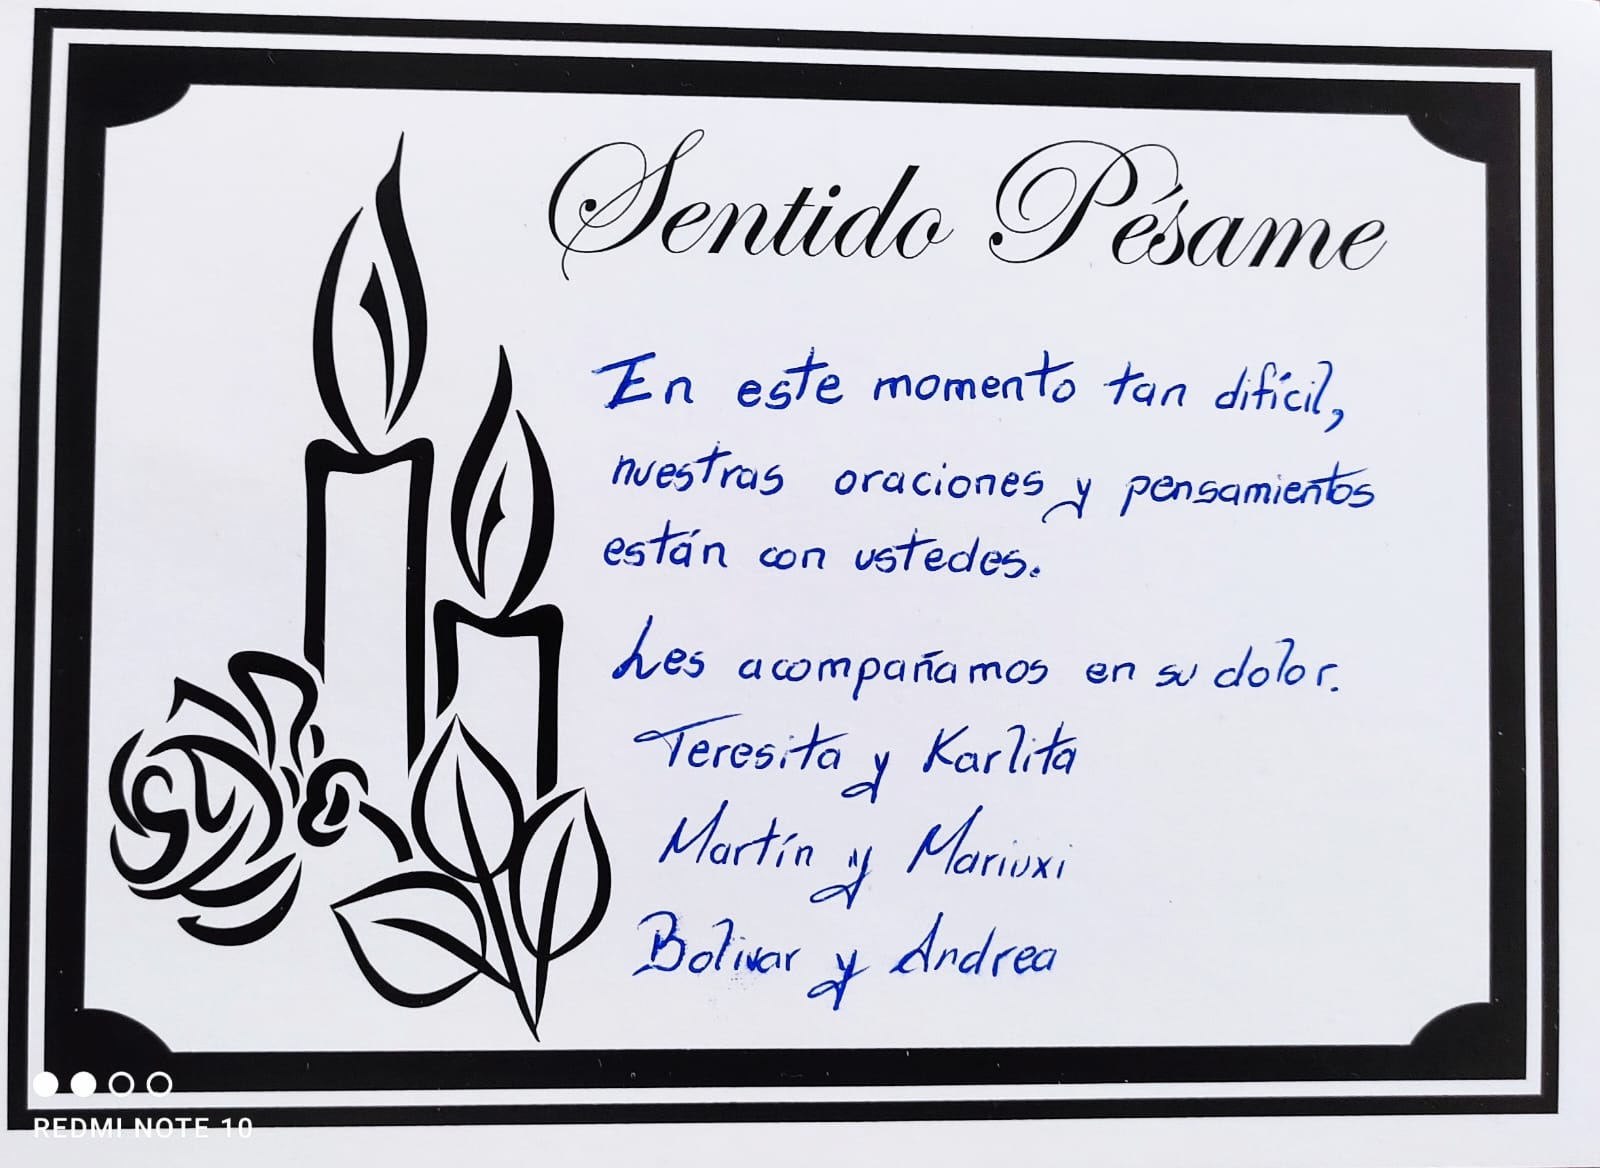 Sentido Pésame
En este momento tan difícil,
nuestras oraciones y pensamientos
están con ustedes.
Les acompañamos en su dolor.
Teresita y Karlita
Martín y Mariuxi
Bolivar y Andrea
REDMI NOTE 10